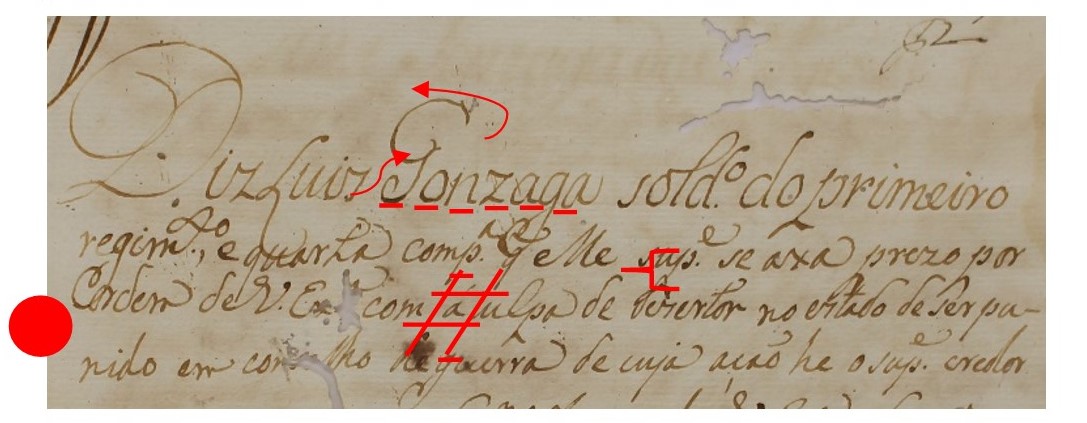 52
Diz Luiz Gonzaga sold.º do primeiro
regim.to, e quarta comp.ª q̃ elle sup.e se axa prezo por
Ordem de V. Ex.ª com a culpa de dezertor no estado de ser pu-
nido em conselho de guerra de cuja ação he o sup.e credor